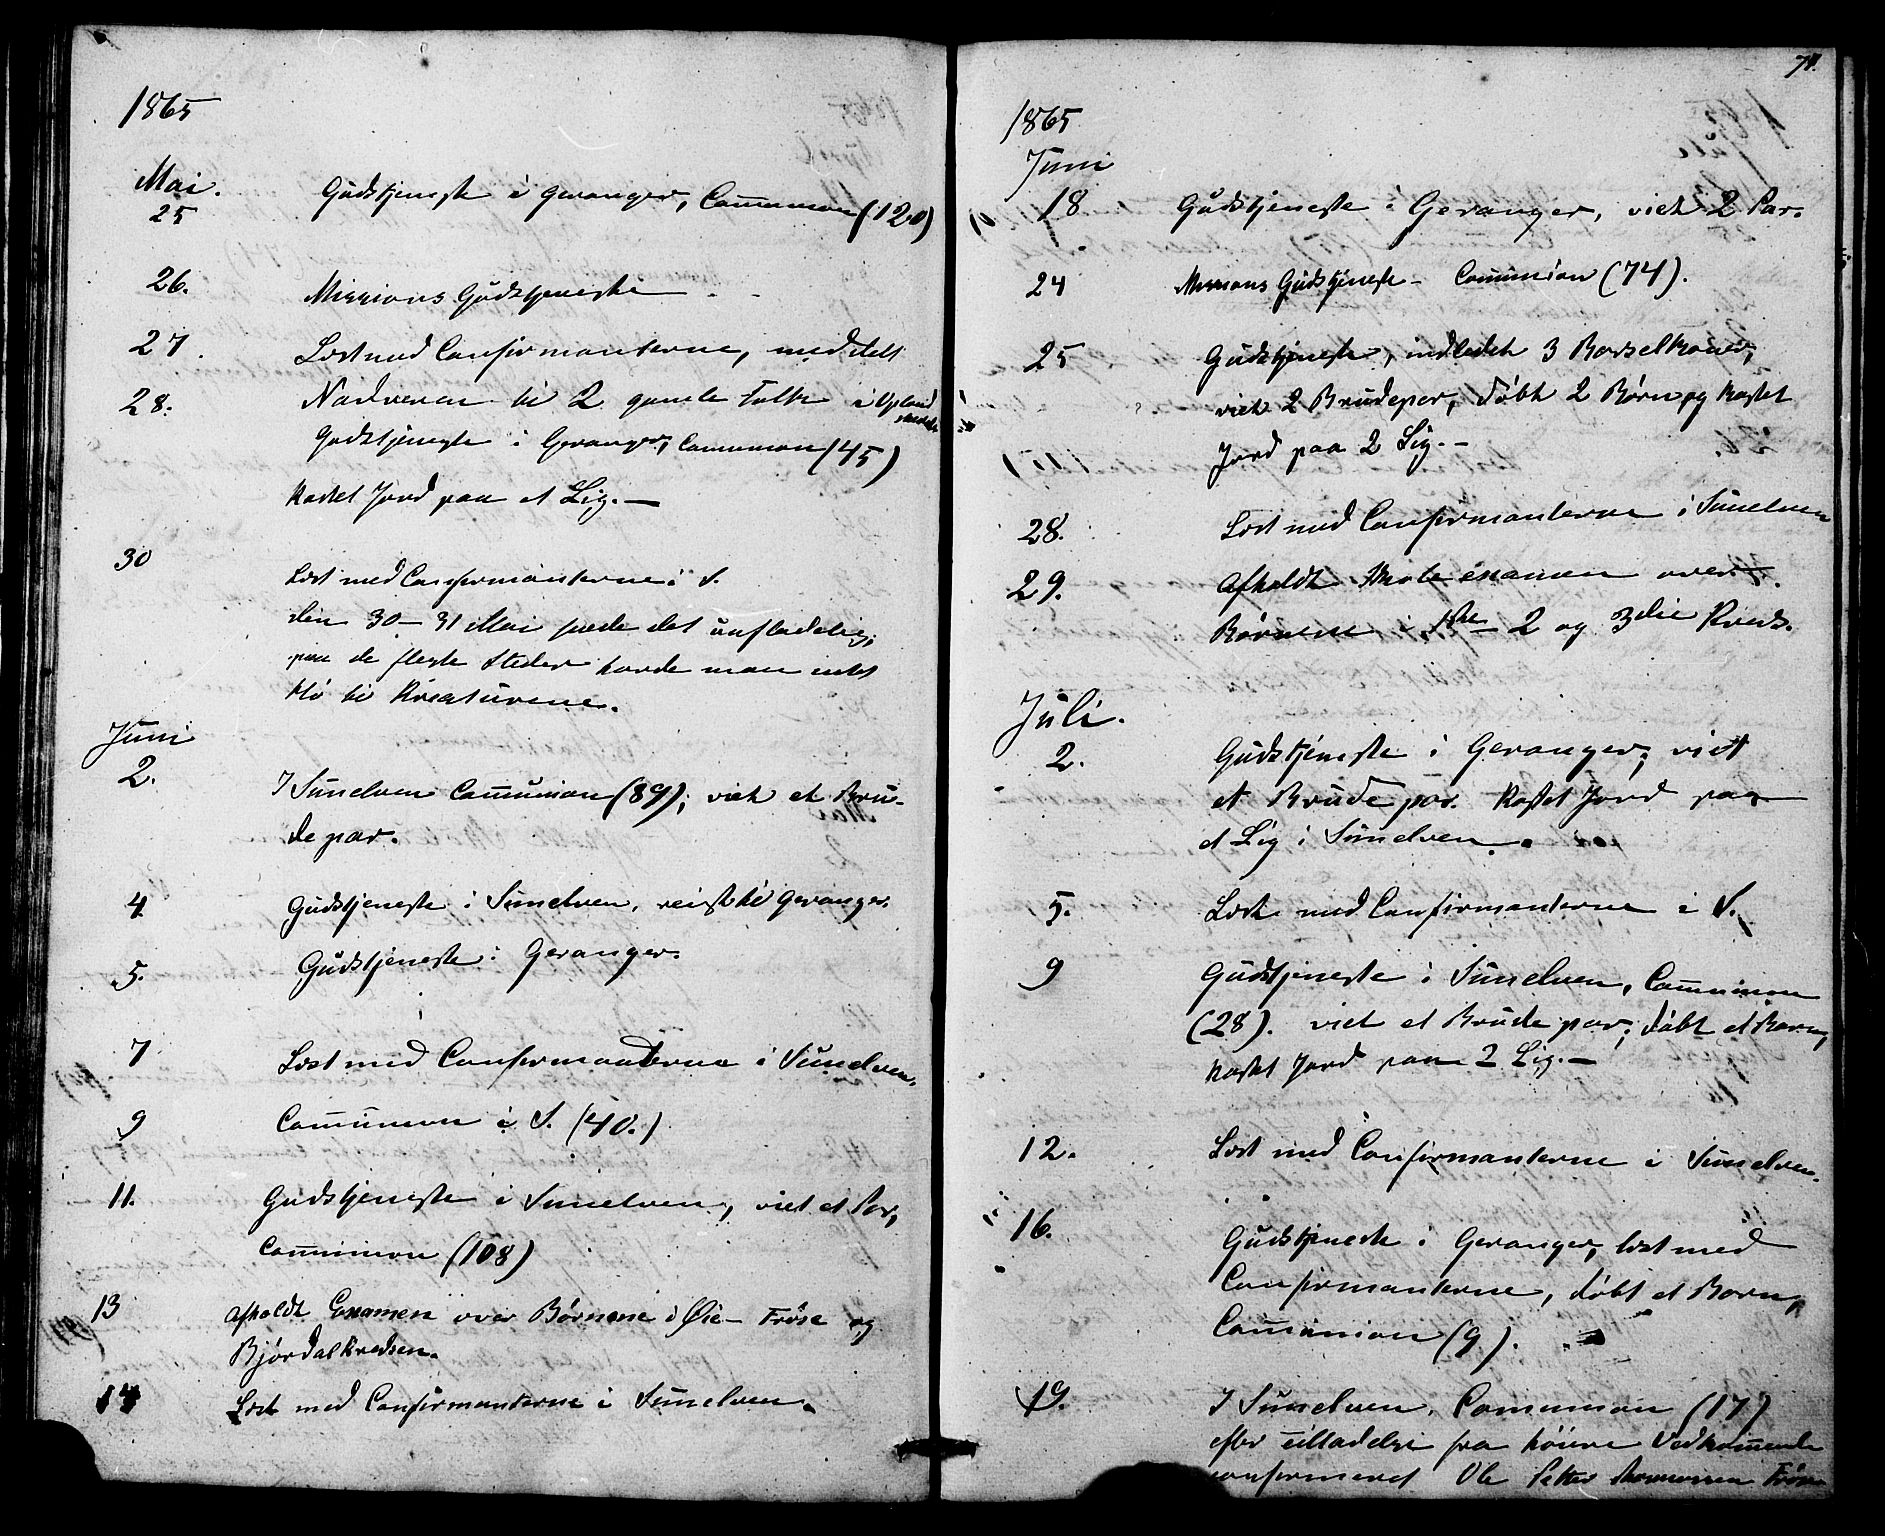 1865
Mai.
25 Gudstjeneste i Geranger, Communion (120)
26. Missions Gudstjeneste
27. Læst med Confirmanterne, meddelt
28. Nadveren til 2 gamle Folk i Opland
Gudstjeneste i Geranger, Communion (45)
kastet Jord paa et Lig.—
30 Læst med Confirmanterne i S.
den 30–31 Mai det
paa de fleste Steder havde man intet
Hø til Kreaturene.
Juni
2. I Sunelven Communion (89); viet et Bru-
depar.
4. Gudstjeneste i Sunelven, reist til Geranger.
5. Gudstjeneste i Geranger.
7 Læst med Confirmanterne i Sunelven.
9 Communion i S. (40.)
11. Gudstjeneste i Sunelven, viet et Par,
Communion (108)
13 Afholdt Examen over Børnene i Øie– Frøse og
Bjørdalkredsen.
14 Læst med Confirmanterne i Sunelven.
71.
1865
Juni
18 Gudstjeneste i Geranger, viet 2 Par.
24 Missions Gudstjeneste – Communion (74).
25 Gudstjeneste, indledet 3 Barselkoner,
viet 2 Brudepar, døbt 2 Børn og kastet
Jord paa 2 Lig.–
28. Læst med Confirmanterne i Sunelven
29. Afholdt Skoleexamen over
Børnene i 1ste 2 og 3die Kreds.
Juli.
2. Gudstjeneste i Geranger; viet
et Brudepar. Kastet Jord paa
et Lig i Sunelven.
5. Læst med Confirmanterne i S.
9 Gudstjeneste i Sunelven, Communion
(28). viet et Brudepar; døbt et Barn,
kastet Jord paa 2 Lig.—
12. Læst med Confirmanterne i Sunelven.
16. Gudstjeneste i Geranger, læst med
Confirmanterne, døbt et Barn,
Communion (9).
19. I Sunelven, Communion (17)
efter Tilladelse fra høiere Vedkommende
confirmeret Ole Petter Frøse